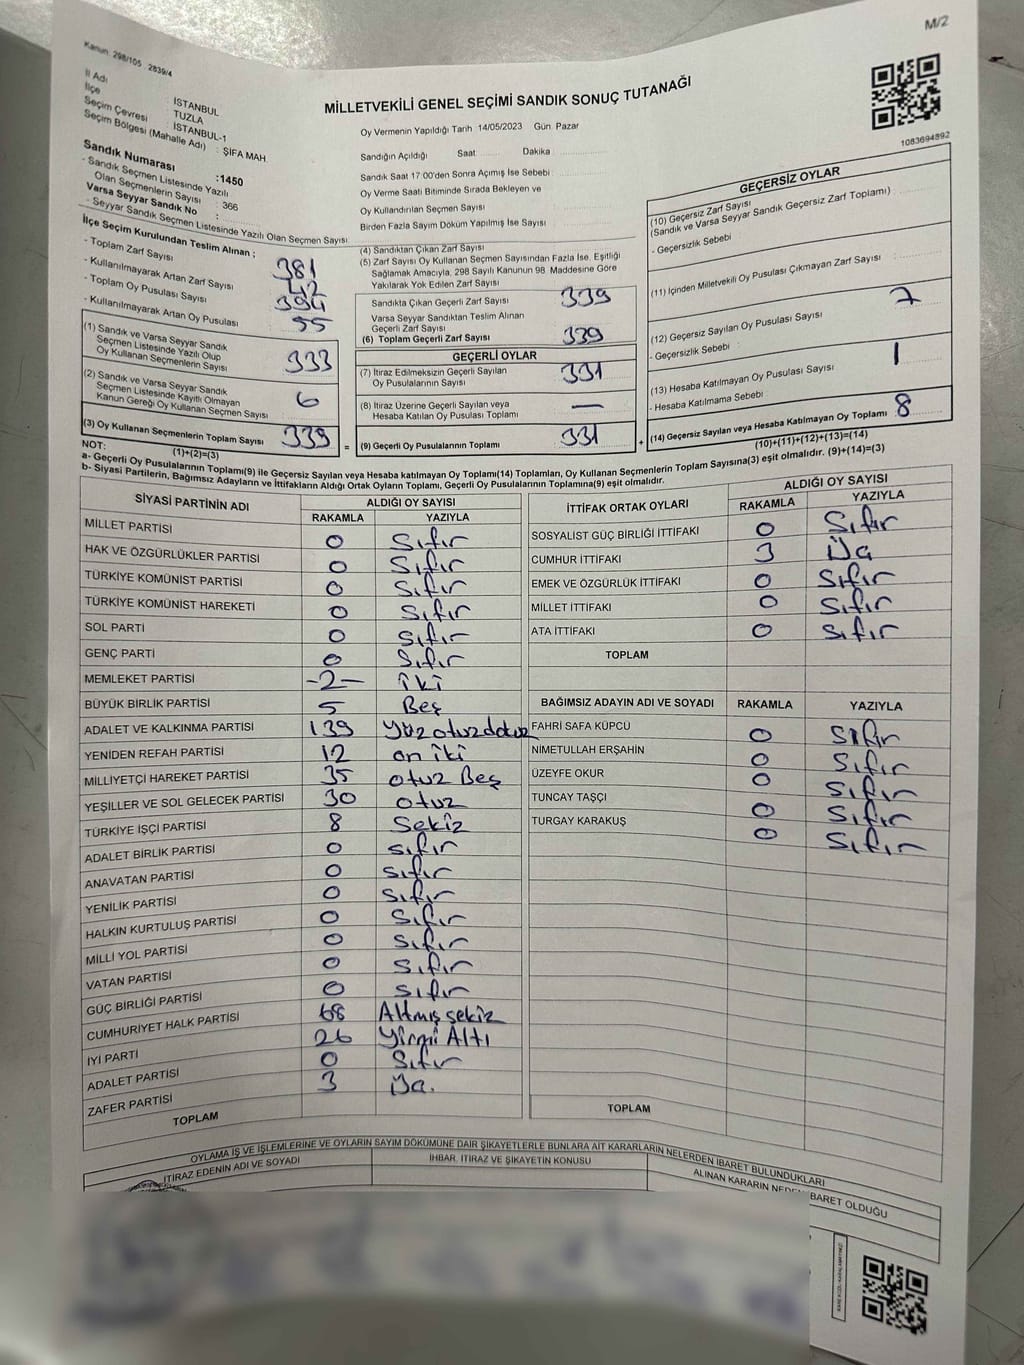 M/2
Kanun: 298/105 2839/4
İl Adı : İSTANBUL
İlçe : TUZLA
Seçim Çevresi : İSTANBUL-1
Seçim Bölgesi (Mahalle Adı) : ŞİFA MAH.
Sandık Numarası :1450
- Sandık Seçmen Listesinde Yazılı
Olan Seçmenlerin Sayısı : 366
Varsa Seyyar Sandık No :
- Seyyar Sandık Seçmen Listesinde Yazılı Olan Seçmen Sayısı
MİLLETVEKİLİ GENEL SEÇİMİ SANDIK SONUÇ TUTANAĞI
Oy Vermenin Yapıldığı Tarih 14/05/2023 Gün Pazar
Sandığın Açıldığı Saat Dakika
Sandık Saat 17:00'den Sonra Açımış İse Sebebi
Oy Verme Saati Bitiminde Sırada Bekleyen ve
Oy Kullandırılan Seçmen Sayısı
Birden Fazla Sayım Döküm Yapılmış İse Sayısı
1083694892
İlçe Seçim Kurulundan Teslim Alınan ;
- Toplam Zarf Sayısı 381
- Kullanılmayarak Artan Zarf Sayısı 42
- Toplam Oy Pusulası Sayısı 394
- Kullanılmayarak Artan Oy Pusulası 55
(1) Sandık ve Varsa Seyyar Sandık
Seçmen Listesinde Yazılı Olup
Oy Kullanan Seçmenlerin Sayısı 333
(2) Sandık ve Varsa Seyyar Sandık
Seçmen Listesinde Kayıtlı Olmayan
Kanun Gereği Oy Kullanan Seçmen Sayısı 6
(3) Oy Kullanan Seçmenlerin Toplam Sayısı 339 =
(1)+(2)=(3)
(4) Sandıktan Çıkan Zarf Sayısı
(5) Zarf Sayısı Oy Kullanan Seçmen Sayısından Fazla İse, Eşitliği
Sağlamak Amacıyla, 298 Sayılı Kanunun 98. Maddesine Göre
Yakılarak Yok Edilen Zarf Sayısı
Sandıkta Çıkan Geçerli Zarf Sayısı 339
Varsa Seyyar Sandıktan Teslim Alınan
Geçerli Zarf Sayısı
(6) Toplam Geçerli Zarf Sayısı 339
GEÇERLİ OYLAR
(7) İtiraz Edilmeksizin Geçerli Sayılan
Oy Pusulalarının Sayısı 331
(8) İtiraz Üzerine Geçerli Sayılan veya
Hesaba Katılan Oy Pusulası Toplamı —
(9) Geçerli Oy Pusulalarının Toplamı 331 +
GEÇERSİZ OYLAR
(10) Geçersiz Zarf Sayısı
(Sandık ve Varsa Seyyar Sandık Geçersiz Zarf Toplamı)
- Geçersizlik Sebebi
(11) İçinden Milletvekili Oy Pusulası Çıkmayan Zarf Sayısı
(12) Geçersiz Sayılan Oy Pusulası Sayısı 7
- Geçersizlik Sebebi :
(13) Hesaba Katılmayan Oy Pusulası Sayısı 1
- Hesaba Katılmama Sebebi
(14) Geçersiz Sayılan veya Hesaba Katılmayan Oy Toplamı 8
(10)+(11)+(12)+(13)=(14)
NOT:
a- Geçerli Oy Pusulalarının Toplamı(9) ile Geçersiz Sayılan veya Hesaba katılmayan Oy Toplamı(14) Toplamları, Oy Kullanan Seçmenlerin Toplam Sayısına(3) eşit olmalıdır. (9)+(14)=(3)
b- Siyasi Partilerin, Bağımsız Adayların ve İttifakların Aldığı Ortak Oyların Toplamı, Geçerli Oy Pusulalarının Toplamına(9) eşit olmalıdır.
SİYASİ PARTİNİN ADI ALDIĞI OY SAYISI
RAKAMLA YAZIYLA
MİLLET PARTİSİ 0 Sıfır
HAK VE ÖZGÜRLÜKLER PARTİSİ 0 Sıfır
TÜRKİYE KOMÜNİST PARTİSİ 0 Sıfır
TÜRKİYE KOMÜNİST HAREKETİ 0 Sıfır
SOL PARTİ 0 Sıfır
GENÇ PARTİ 0 Sıfır
MEMLEKET PARTİSİ -2- iki
BÜYÜK BİRLİK PARTİSİ 5 Beş
ADALET VE KALKINMA PARTİSİ 139 Yüz otuz dokuz
YENİDEN REFAH PARTİSİ 12 on iki
MİLLİYETÇİ HAREKET PARTİSİ 35 otuz Beş
YEŞİLLER VE SOL GELECEK PARTİSİ 30 otuz
TÜRKİYE İŞÇİ PARTİSİ 8 Sekiz
ADALET BİRLİK PARTİSİ 0 sıfır
ANAVATAN PARTİSİ 0 sıfır
YENİLİK PARTİSİ 0 sıfır
HALKIN KURTULUŞ PARTİSİ 0 Sıfır
MİLLİ YOL PARTİSİ 0 Sıfır
VATAN PARTİSİ 0 sıfır
GÜÇ BİRLİĞİ PARTİSİ 0 sıfır
CUMHURİYET HALK PARTİSİ 68 Altmış sekiz
İYİ PARTİ 26 Yirmi Altı
ADALET PARTİSİ 0 Sıfır
ZAFER PARTİSİ 3 Üç.
TOPLAM
İTTİFAK ORTAK OYLARI ALDIĞI OY SAYISI
RAKAMLA YAZIYLA
SOSYALİST GÜÇ BİRLİĞİ İTTİFAKI 0 Sıfır
CUMHUR İTTİFAKI 3 Üç
EMEK VE ÖZGÜRLÜK İTTİFAKI 0 Sıfır
MİLLET İTTİFAKI 0 Sıfır
ATA İTTİFAKI 0 sıfır
TOPLAM
BAĞIMSIZ ADAYIN ADI VE SOYADI RAKAMLA YAZIYLA
FAHRİ SAFA KÜPCÜ 0 Sıfır
NİMETULLAH ERŞAHİN 0 Sıfır
ÜZEYFE OKUR 0 Sıfır
TUNCAY TAŞÇI 0 Sıfır
TURGAY KARAKUŞ 0 Sıfır
TOPLAM
OYLAMA İŞ VE İŞLEMLERİNE VE OYLARIN SAYIM DÖKÜMÜNE DAİR ŞİKAYETLERLE BUNLARA AİT KARARLARIN NELERDEN İBARET BULUNDUKLARI
İTİRAZ EDENİN ADI VE SOYADI İHBAR, İTİRAZ VE ŞİKAYETİN KONUSU ALINAN KARARIN NEDEN İBARET OLDUĞU